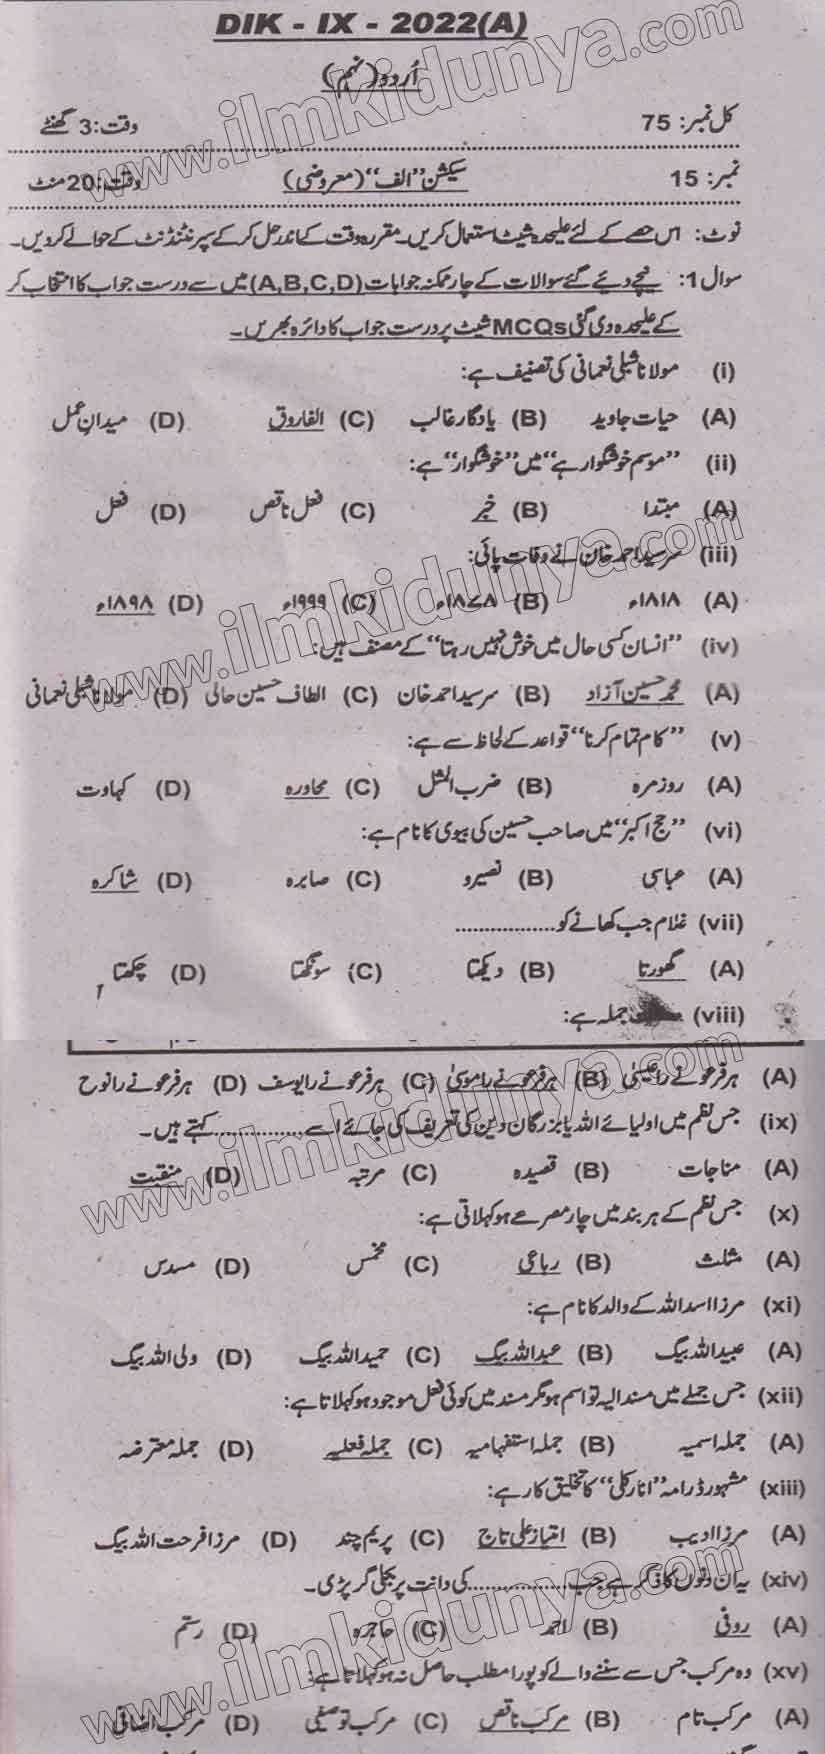 DIK - IX - 2022(A)
اُردو (نہم)
کل نمبر: 75 وقت: 3 گھنٹے
نمبر: 15 سیکشن "الف" (معروضی) وقت: 20 منٹ
نوٹ: اس حصے کے لئے علیحدہ شیٹ استعمال کریں۔ مقررہ وقت کے اندر حل کر کے سپرنٹنڈنٹ کے حوالے کر دیں۔
سوال 1: نیچے دیئے گئے سوالات کے چار ممکنہ جوابات (A,B,C,D) میں سے درست جواب کا انتخاب کر
کے علیحدہ دی گئی MCQs شیٹ پر درست جواب کا دائرہ بھریں۔
(i) مولانا شبلی نعمانی کی تصنیف ہے:
(A) حیات جاوید (B) یادگار غالب (C) الفاروق (D) میدانِ عمل
(ii) "موسم خوشگوار ہے" میں "خوشگوار" ہے:
(A) مبتدا (B) خبر (C) فعل ناقص (D) فعل
(iii) سرسید احمد خان نے وفات پائی:
(A) ۱۸۱۸ء (B) ۱۸۷۸ء (C) ۱۹۹۹ء (D) ۱۸۹۸ء
(iv) "انسان کسی حال میں خوش نہیں رہتا" کے مصنف ہیں:
(A) محمد حسین آزاد (B) سرسید احمد خان (C) الطاف حسین حالی (D) مولانا شبلی نعمانی
(v) "کام تمام کرنا" قواعد کے لحاظ سے ہے:
(A) روزمرہ (B) ضرب المثل (C) محاورہ (D) کہاوت
(vi) "حج اکبر" میں صاحب حسین کی بیوی کا نام ہے:
(A) عباسی (B) نصیرو (C) صابرہ (D) شاکرہ
(vii) غلام جب کھانے کو ..................
(A) گھورتا (B) دیکھتا (C) سونگھتا (D) چکھتا
(viii) جملہ ہے:
(A) ہر فرعونے را عیسیٰ (B) ہر فرعونے را موسیٰ (C) ہر فرعونے را یوسف (D) ہر فرعونے را نوح
(ix) جس نظم میں اولیائے اللہ یا بزرگان دین کی تعریف کی جائے اسے ............... کہتے ہیں۔
(A) مناجات (B) قصیدہ (C) مرتبہ (D) منقبت
(x) جس نظم کے ہر بند میں چار مصرعے ہو کہلاتی ہے:
(A) مثلث (B) رباعی (C) مخمس (D) مسدس
(xi) مرزا اسد اللہ کے والد کا نام ہے:
(A) عبید اللہ بیگ (B) عبداللہ بیگ (C) حمید اللہ بیگ (D) ولی اللہ بیگ
(xii) جس جملے میں مسند الیہ تو اسم ہو مگر مسند میں کوئی فعل موجود ہو کہلاتا ہے:
(A) جملہ اسمیہ (B) جملہ استفہامیہ (C) جملہ فعلیہ (D) جملہ معترضہ
(xiii) مشہور ڈرامہ "انارکلی" کا تخلیق کار ہے:
(A) مرزا ادیب (B) امتیاز علی تاج (C) پریم چند (D) مرزا فرحت اللہ بیگ
(xiv) یہ ان دنوں کا ذکر ہے جب .................. کی دانت پر بجلی گر پڑی۔
(A) روفی (B) احمد (C) حاجرہ (D) رستم
(xv) وہ مرکب جس سے سننے والے کو پورا مطلب حاصل نہ ہو کہلاتا ہے:
(A) مرکب تام (B) مرکب ناقص (C) مرکب توصیفی (D) مرکب اضافی
www.ilmkidunya.com
www.ilmkidunya.com
www.ilmkidunya.com
www.ilmkidunya.com